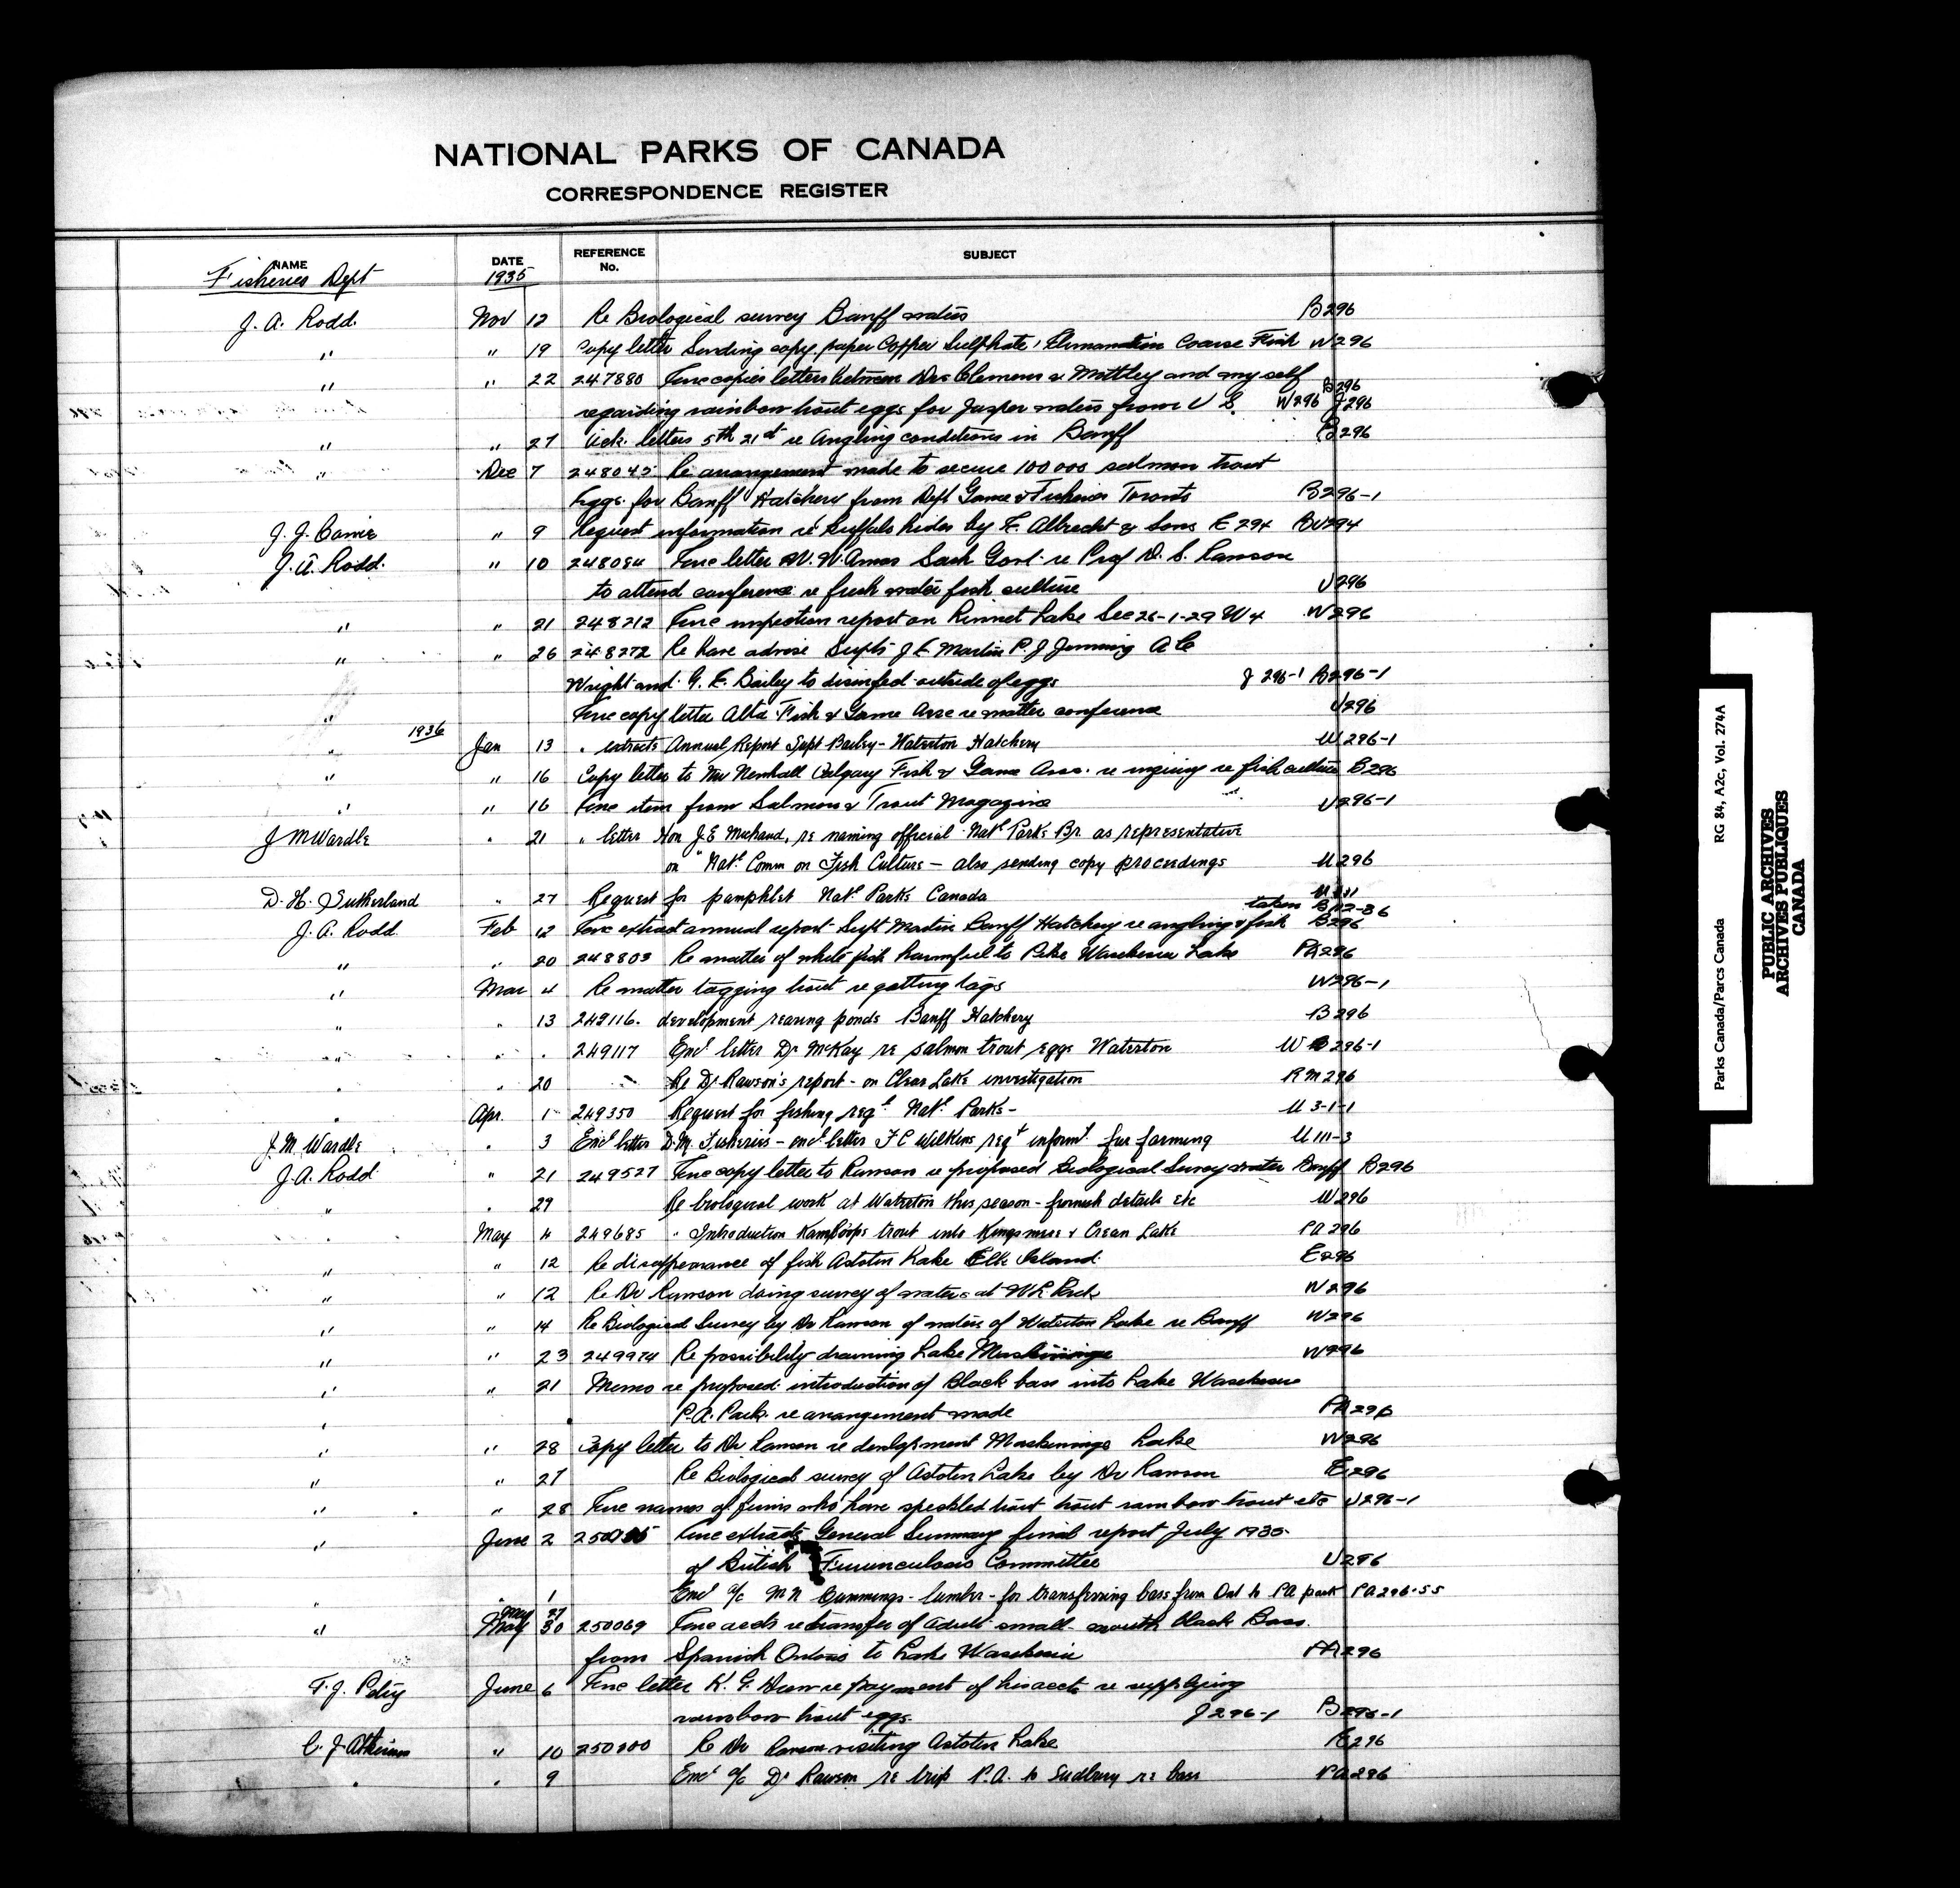 NATIONAL PARKS OF CANADA
CORRESPONDENCE REGISTER
NAME DATE REFERENCE No. SUBJECT
Fisheries Dept 1935
J. A. Rodd. Nov 12 Re Biological survey Banff waters B296
" " 19 Copy letter Sending copy paper Copper Sulphate, Elimination Coarse Fish W296
" " 22 247880 Enc copies letters between Drs Clemens & Mottley and myself B296
regarding rainbow trout eggs for Jasper waters from U S. W296 J296
" " 27 Ack. letters 5th 21st re Angling conditions in Banff B296
" Dec 7 248045 Re arrangement made to secure 100000 salmon trout
Eggs for Banff Hatchery from Dept Game & Fisheries Toronto B296-1
J. J. " 9 Request information re Buffalo hides by F. Albrecht & Sons E294 BU294
J. A. Rodd. " 10 248084 Enc letter W. W. Amos Sask Govt re Prof D. S. Rawson
to attend conference re fresh water fish culture U296
" " 21 248212 Enc inspection report on Lake Sec 26-1-29 W4 W296
" " 26 248272 Re have advise Supts J E Martin P. J Jenning A C
Wright and G. E. Bailey to disinfect outside of eggs J 296-1 B296-1
" Enc copy letter Alta Fish & Game Assc re matter conference U296
1936
" Jan 13 " extracts Annual Report Supt Bailey - Waterton Hatchery W296-1
" " 16 Copy letter to Mr Calgary Fish & Game Assc. re re fish culture B296
" " 16 Enc item from Salmon & Trout Magazine U296-1
J M Wardle " 21 " letter Hon J. E Michaud, re naming official Natl Parks Br as representative
on "Natl Comm on Fish Culture - also sending copy proceedings U296
D. H. Sutherland " 27 Request for pamphlet Natl Parks Canada
taken
J. A. Rodd. Feb 12 Enc extract annual report Supt Martin Banff Hatchery re angling & fish B296
" " 20 248803 Re matter of white fish harmful to Pike Waskesiu Lake PA296
" Mar 4 Re matter tagging trout re getting tags W296-1
" " 13 249116. development rearing ponds Banff Hatchery B296
" " " 249117 Encl letter Dr McKay re salmon trout eggs Waterton W 296-1
" " 20 Re Dr Rawson's report - on Clear Lake investigation RM296
" Apr. 1 249350 Request for fishing regs Natl Parks - U 3-1-1
J. M. Wardle " 3 Encl letter D. M. Fisheries - encl letter F C Wilkins reqt informt fur farming U 111-3
J. A. Rodd " 21 249527 Enc copy letter to Rawson re proposed Biological Survey water Banff B296
" " 29 Re biological work at Waterton this season - furnish details etc W296
" May 4 249685 " Introduction Kamloops trout into Kingsmere & Crean Lake PA 296
" " 12 Re disappearance of fish Astotin Lake Elk Island. E296
" " 12 Re Dr Rawson doing survey of waters at W L Park W296
" " 14 Re Biological Survey by Dr Rawson of waters of Waterton Lake re Banff W296
" " 23 249974 Re possibility draining Lake Maskinonge W296
" " 21 Memo re proposed introduction of Black bass into Lake Waskesiu
" P.A. Park. re arrangement made PA296
" " 28 Copy letter to Dr Rawson re development Maskinonge Lake W296
" " 27 Re Biological survey of Astotin Lake by Dr Rawson E296
" " 28 Enc names of firms who have speckled trout trout rainbow trout etc U296-1
" June 2 Enc extracts General Summary final report July 1935
of British Furunculosis Committee U296
" " 1 Encl a/c M N Cummings - lumber - for transferring bass from Ont to PA park PA296-55
" May 27
May 30 250069 Enc accts re transfer of adult small mouth black Bass.
from Spanish Ontario to Lake Waskesiu PA296
F. J. June 6 Enc letter K. G. re payment of his acct re supplying
rainbow trout eggs. J296-1 B296-1
C. J Atkinson " 10 Re Dr Rawson visiting Astotin Lake E296
" " 9 Encl a/c Dr Rawson re trip P.A. to Sudbury re bass PA296
Parks Canada/Parcs Canada RG 84, A2c, Vol. 274A
PUBLIC ARCHIVES
ARCHIVES PUBLIQUES
CANADA